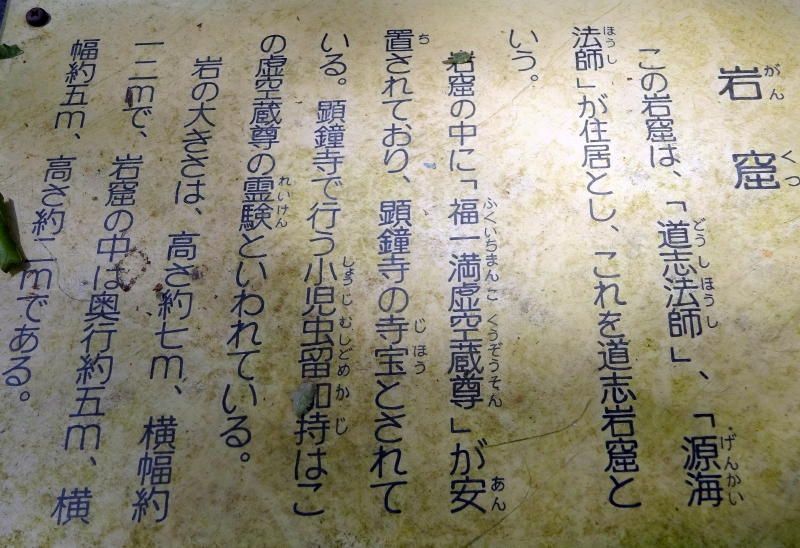 岩窟
この岩窟は、「道志法師」、「源海
法師」が住居とし、これを道志岩窟と
いう。
岩窟の中に「福一満虚空蔵尊」が安
置されており、顕鐘寺の寺宝とされて
いる。顕鐘寺で行う小児虫留加持はこ
の虚空蔵尊の霊験といわれている。
岩の大きさは、高さ約七m、横幅約
一二mで、岩窟の中は奥行約五m、横
幅約五m、高さ約二mである。